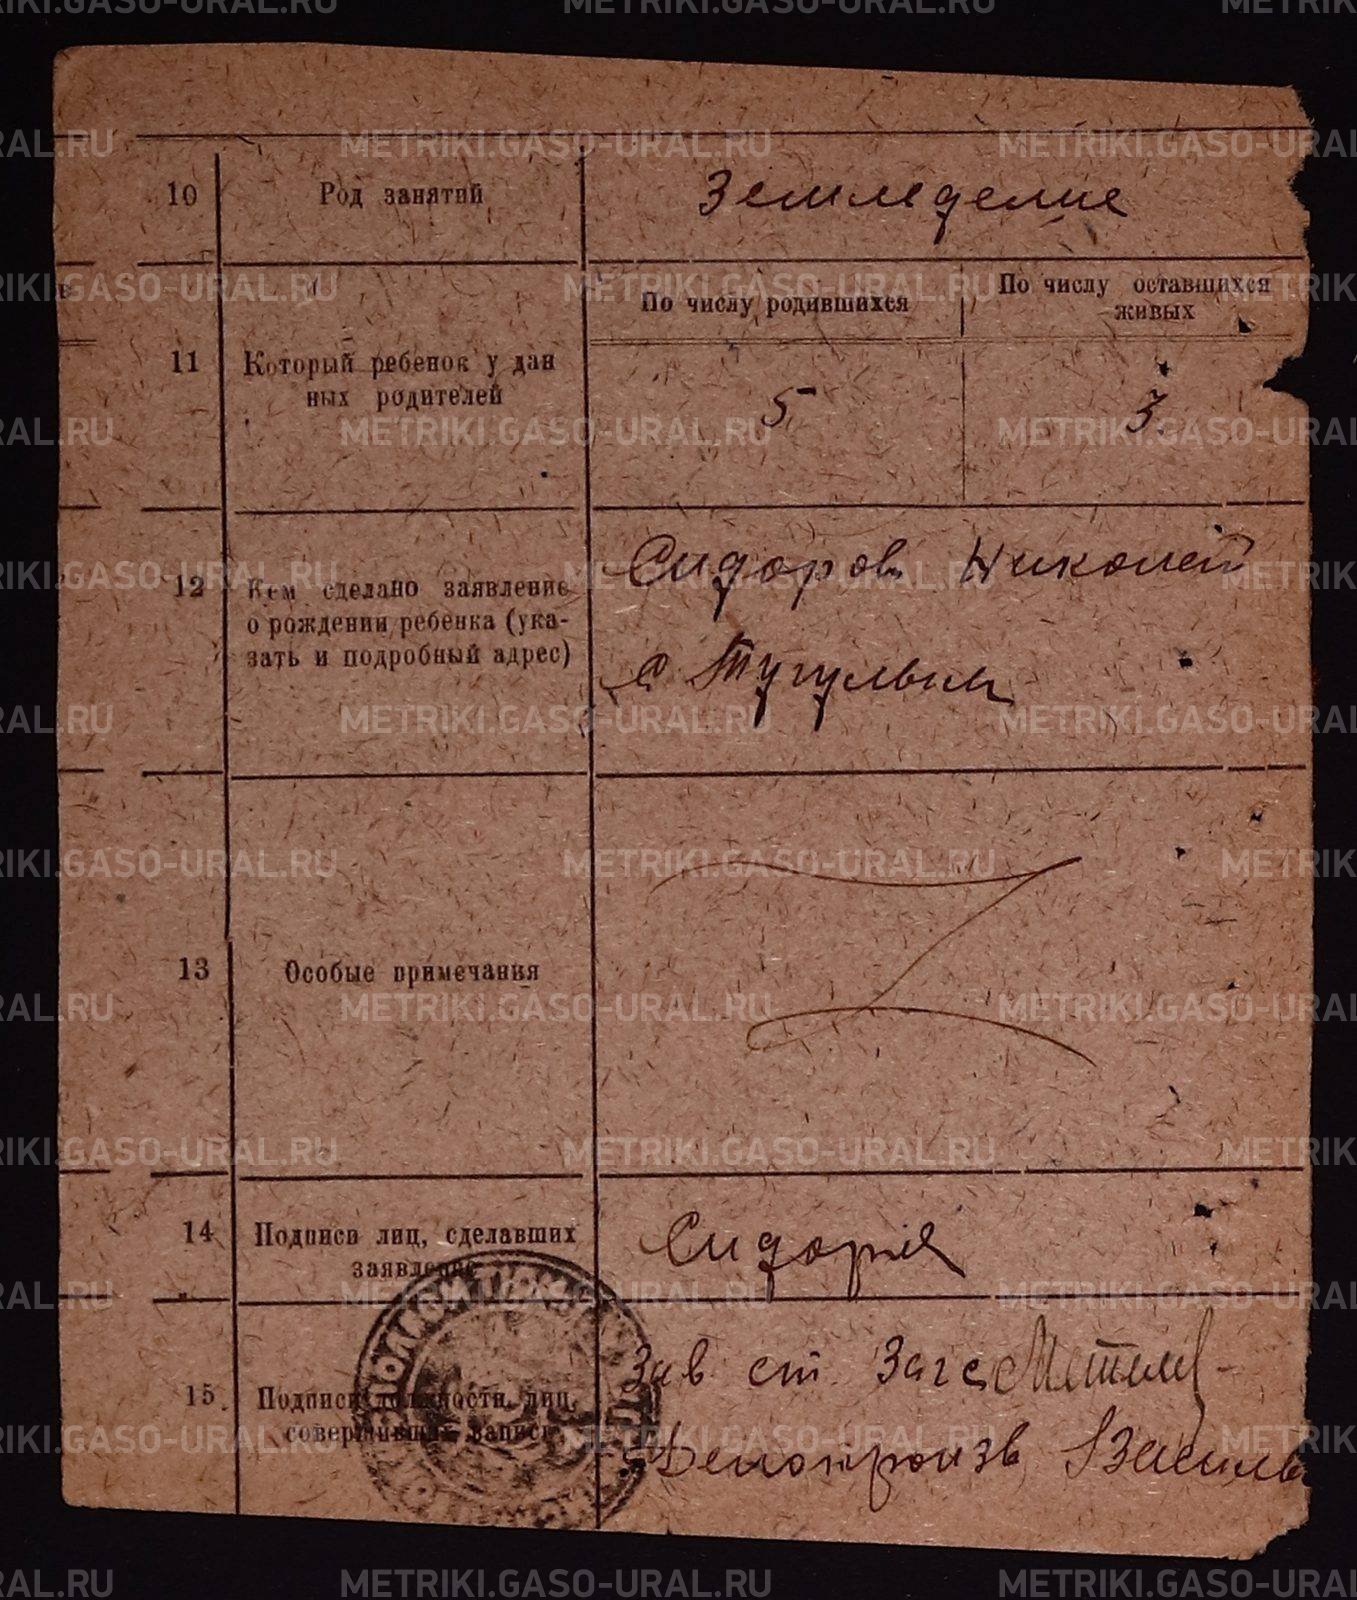 10 Род занятий Земледелие
По числу родившихся По числу оставшихся
живых
11 Который ребенок у дан
ных родителей 5 3
Сидоров Николай
12 Кем сделано заявление
о рождении ребенка (ука-
зать и подробный адрес) с Тугулым
13 Особые примечания
14 Подписи лиц, сделавших Сидоров
заявление
Зав ст Загс
15 Подписи должности лиц,
совершивших запись Делопроизв
METRIKI.GASO-URAL.RU